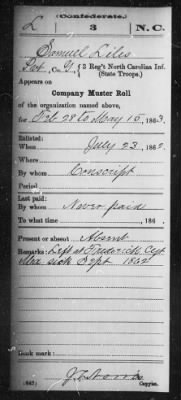 (Confederate.)
L 3 N.C.
Samuel Liles
Pvt, Co. G, { 2 Reg't North Carolina Inf.
(State Troops.)
Appears on
Company Muster Roll
of the organization named above,
for Feb 28 to May 15, 1863
Enlisted:
When July 23, 1862
Where
By whom Conscript
Period
Last paid:
By whom Never paid
To what time , 186 .
Present or absent Absent
Remarks: Left at Frederick City
Md sick Sept 1862
Book mark:
(642) Copyist.